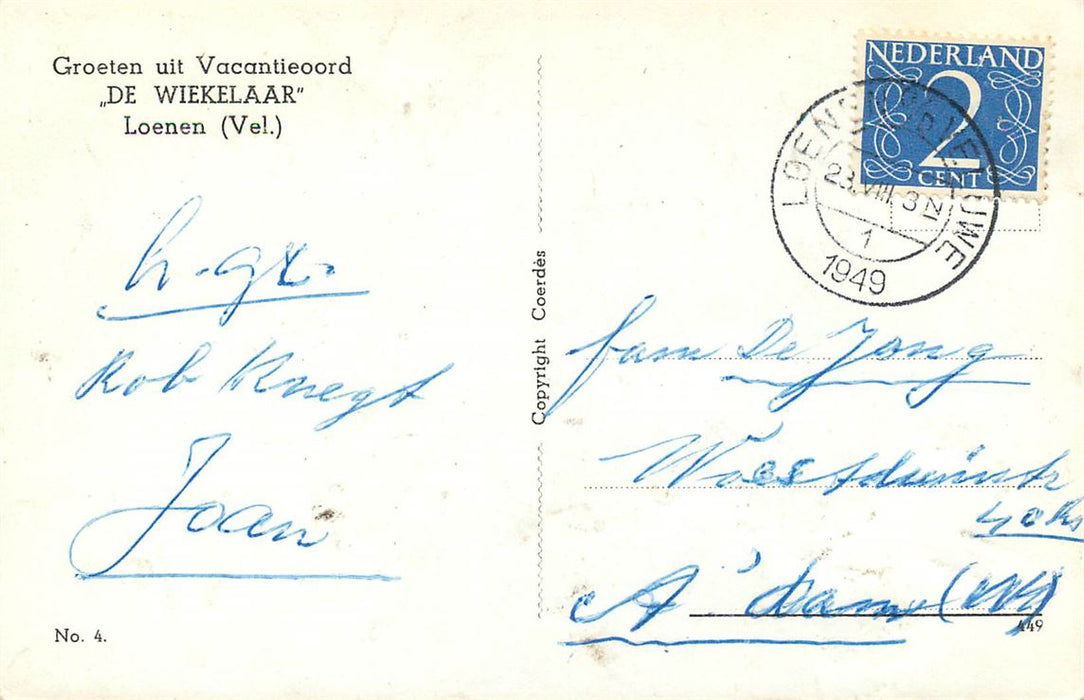 Groeten uit Vacantieoord
„DE WIEKELAAR"
Loenen (Vel.)
h. gr.
Rob Knegt
Joan
No. 4.
Copyright Coerdès
NEDERLAND
2
CENT
LOENEN VELUWE
23.VIII. 3 N
1
1949
fam De Jong
Woestduinstr
40 hs
A'dam (W)
449